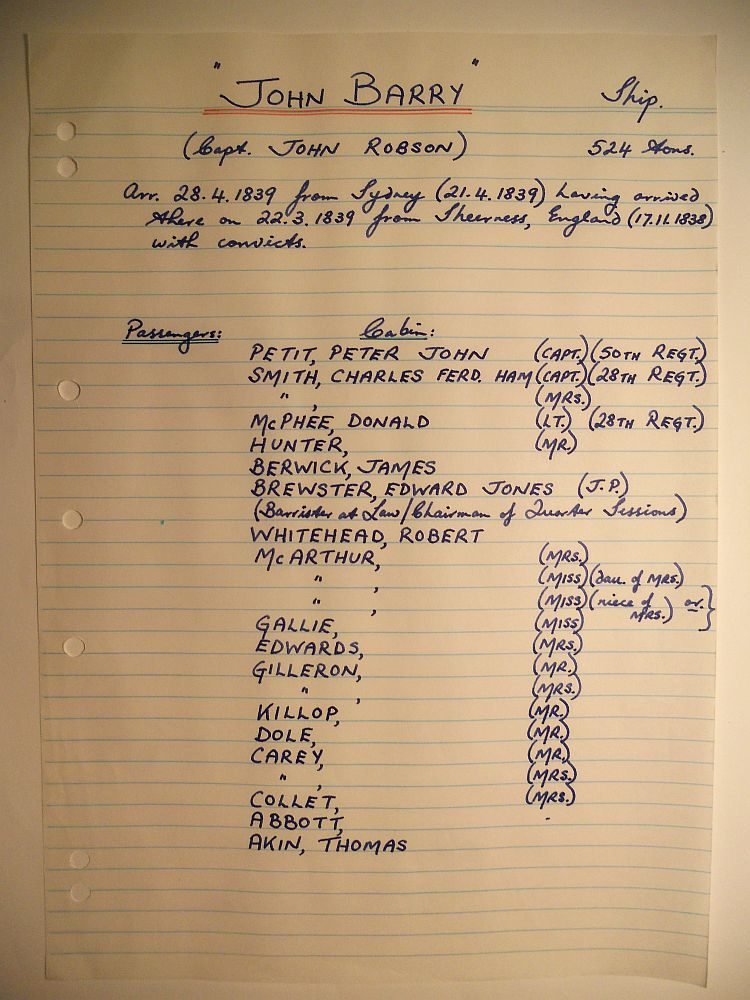 "JOHN BARRY" Ship.
(Capt. JOHN ROBSON) 524 tons.
Arr. 28.4.1839 from Sydney (21.4.1839) having arrived
there on 22.3.1839 from Sheerness, England (17.11.1838)
with convicts.
Passengers: Cabin:
PETIT, PETER JOHN (CAPT.) (50TH REGT.)
SMITH, CHARLES FERD. HAM (CAPT.) (28TH REGT.)
" , (MRS.)
McPHEE, DONALD (LT.) (28TH REGT.)
HUNTER, (MR.)
BERWICK, JAMES
BREWSTER, EDWARD JONES (J.P.)
(Barrister at Law/Chairman of Quarter Sessions)
WHITEHEAD, ROBERT
McARTHUR, (MRS.)
" , (MISS) (dau. of MRS.)
" , (MISS) (niece of MRS.) or }
GALLIE, (MISS)
EDWARDS, (MRS.)
GILLERON, (MR.)
" , (MRS.)
KILLOP, (MR.)
DOLE, (MR.)
CAREY, (MR.)
" , (MRS.)
COLLET, (MRS.)
ABBOTT, -
AKIN, THOMAS